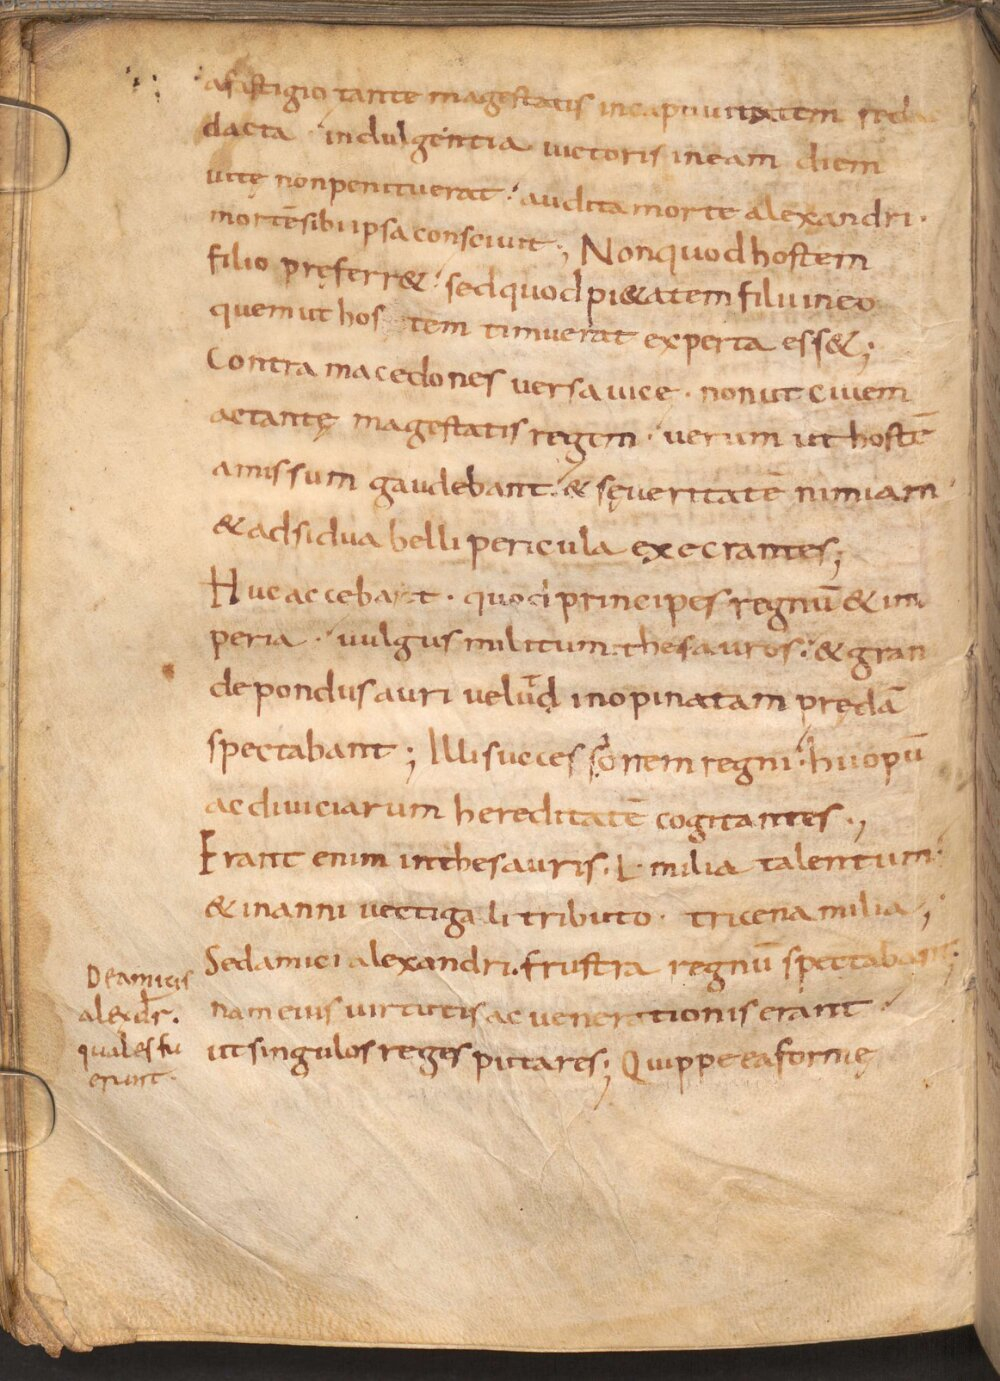 afastigio tante magestatis incaptiuitatem redac
dacta indulgentia uictoris ineam diem
uitę nonpenituerat. audita morte alexandri.
mortēsibi ipsa consciuit; Nonquod hostem
filio pręferr&. sed quod pi&atem filii ineo
quem ut hos tem timuerat experta ess&;
Contra macedones uersa uice. non ut ciuem
actantę magestatis regem. uerum ut hostē
amissum gaudebant. & sęueritatē nimiam
& adsidua belli pericula execrantes;
Huc accebant. quod principes regnū & im
peria. uulgus militum thesauros. & gran
de pondus auri velud inopinatam prędā
spectabant; Illi successionem regni. hii opū
ac diuiciarum hereditatē cogitantes.,
Erant enim inthesauris. L. milia talentum.
& inanni uectigali tributo. tricena milia;
Sed amici alexandri. frustra regnū spectabant;
nam eius uirtutis ac uenerationis erant
ut singulos reges putares; Quippe ea formę
De amicis
alexdr.
quales fu
erunt.